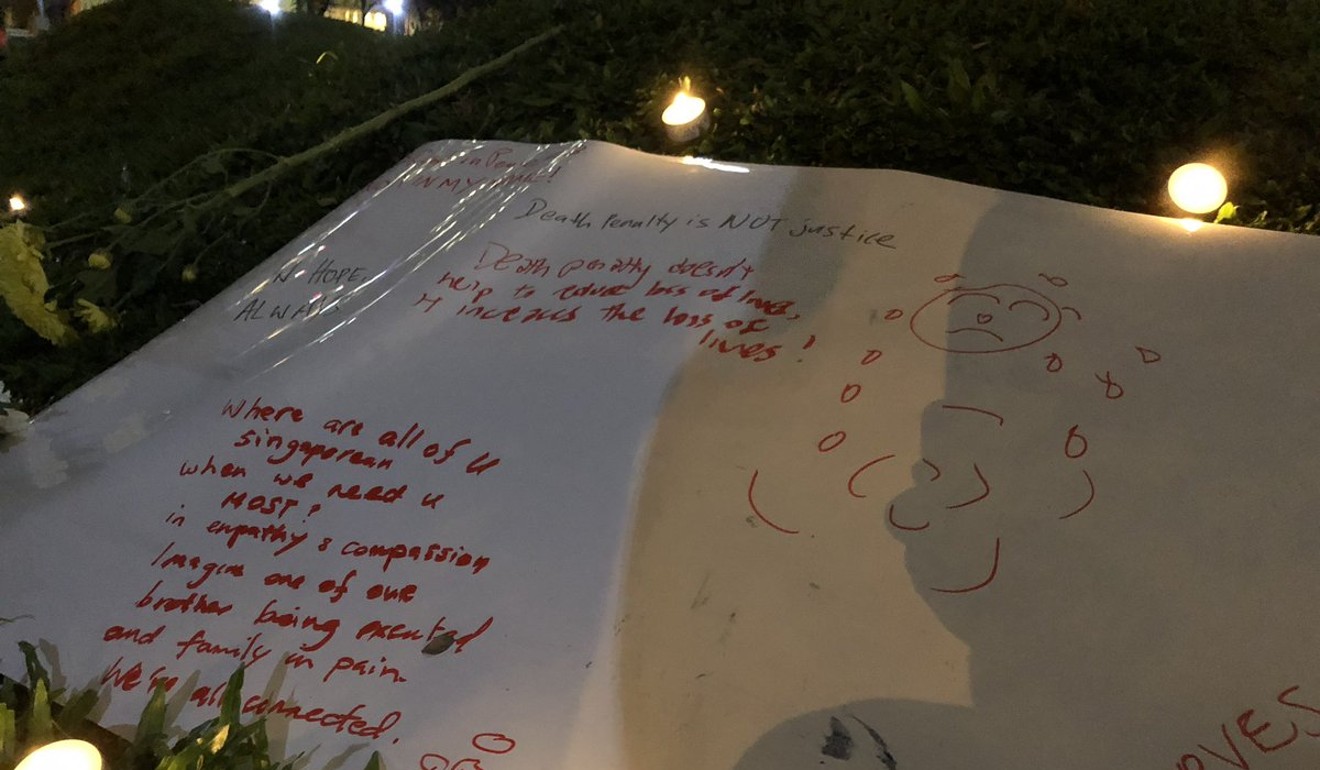 Death Penalty is NOT justice
HOPE,
ALWAYS
Death penalty doesn't
help to reduce loss of lives,
it increases the loss of
lives!
Where are all of u
singaporean
when we need u
MOST?
in empathy & compassion
Imagine one of our
brother being executed
and family in pain.
We're all connected.
RVES